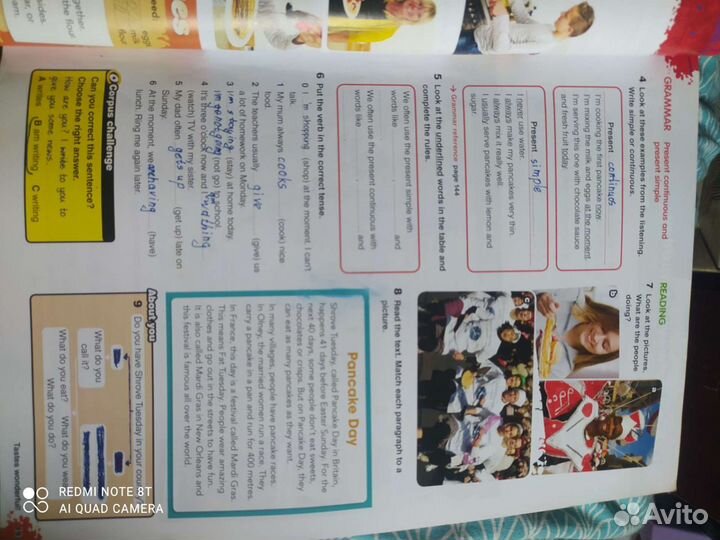 GRAMMAR
Present continuous and
present simple
4 Look at these examples from the listening.
Write simple or continuous.
Present continuos
I'm cooking the first pancake now.
I'm mixing the milk and eggs at the moment.
I'm serving this one with chocolate sauce
and fresh fruit today.
Present simple
I never use water.
I always make my pancakes very thin.
I always mix it really well.
I usually serve pancakes with lemon and
sugar.
→ Grammar reference page 144
5 Look at the underlined words in the table and
complete the rules.
We often use the present simple with
words like and
We often use the present continuous with
words like and
6 Put the verb in the correct tense.
0 I 'm shopping (shop) at the moment. I can't
talk.
1 My mum always cooks (cook) nice
food.
2 The teachers usually give (give) us
a lot of homework on Monday.
3 I'm staying (stay) at home today.
(not go) to school.
4 It's three o'clock now and I
(watch) TV with my sister.
5 My dad often gets up (get up) late on
Sunday.
6 At the moment, we having (have)
lunch. Ring me again later.
Corpus challenge
Can you correct this sentence?
Choose the right answer.
How are you? I write to you to
give you some news.
A writes B am writing C writing
READING
7 Look at the pictures.
What are the people
doing?
a
b
c
8 Read the text. Match each paragraph to a
picture.
Pancake Day
Shrove Tuesday, called Pancake Day in Britain,
happens 41 days before Easter Sunday. For the
next 40 days, some people don't eat sweets,
chocolates or crisps. But on Pancake Day, they
can eat as many pancakes as they want.
In many villages, people have pancake races.
In Olney, the married women run a race. They
carry a pancake in a pan and run for 400 metres.
In France, this day is a festival called Mardi Gras.
This means Fat Tuesday. People wear amazing
clothes and go out in the streets to have fun.
It is also called Mardi Gras in New Orleans and
this festival is famous all over the world.
About you
9 Do you have Shrove Tuesday in your country?
What do you
call it?
What do you eat? What do you wear?
What do you do?
Tastes wonderful
REDMI NOTE 8T
AI QUAD CAMERA
Avito